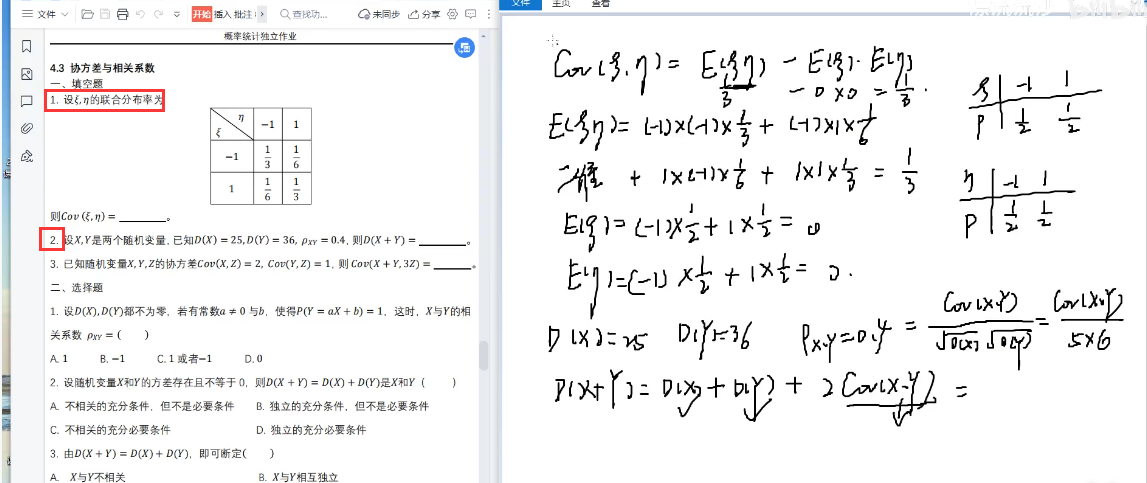 文件 开始 插入 批注 查找功... 未同步 分享
概率统计独立作业
4.3 协方差与相关系数
一、填空题
1. 设ξ,η的联合分布率为
η −1 1
ξ
−1 1/3 1/6
1 1/6 1/3
则Cov (ξ,η) = ________。
2. 设X,Y是两个随机变量, 已知D(X) = 25, D(Y) = 36, ρXY = 0.4, 则D(X + Y) = ________。
3. 已知随机变量X,Y,Z的协方差Cov(X,Z) = 2, Cov(Y,Z) = 1, 则 Cov(X + Y, 3Z) = ________。
二、选择题
1. 设D(X), D(Y)都不为零, 若有常数a ≠ 0 与b, 使得P(Y = aX + b) = 1, 这时, X与Y的相
关系数 ρXY = ( )
A. 1 B. −1 C. 1 或者−1 D. 0
2. 设随机变量X和Y的方差存在且不等于 0, 则D(X + Y) = D(X) + D(Y)是X和Y ( )
A. 不相关的充分条件, 但不是必要条件 B. 独立的充分条件, 但不是必要条件
C. 不相关的充分必要条件 D. 独立的充分必要条件
3. 由D(X + Y) = D(X) + D(Y), 即可断定( )
A. X与Y不相关 B. X与Y相互独立
文件 主页 查看
bilibili
Cov(ξ,η) = E(ξη) − E(ξ)·E(η)
1/3 − 0×0 = 1/3.
E(ξη) = (−1)×(−1)×1/3 + (−1)×1×1/6
二维 + 1×(−1)×1/6 + 1×1×1/3 = 1/3
E(ξ) = (−1)×1/2 + 1×1/2 = 0
E(η) = (−1)×1/2 + 1×1/2 = 0.
ξ −1 1
P 1/2 1/2
η −1 1
P 1/2 1/2
D(X)=25 D(Y)=36 ρX,Y=0.4 = Cov(X,Y)/√D(X)√D(Y) = Cov(X,Y)/5×6
D(X+Y) = D(X) + D(Y) + 2Cov(X,Y) =